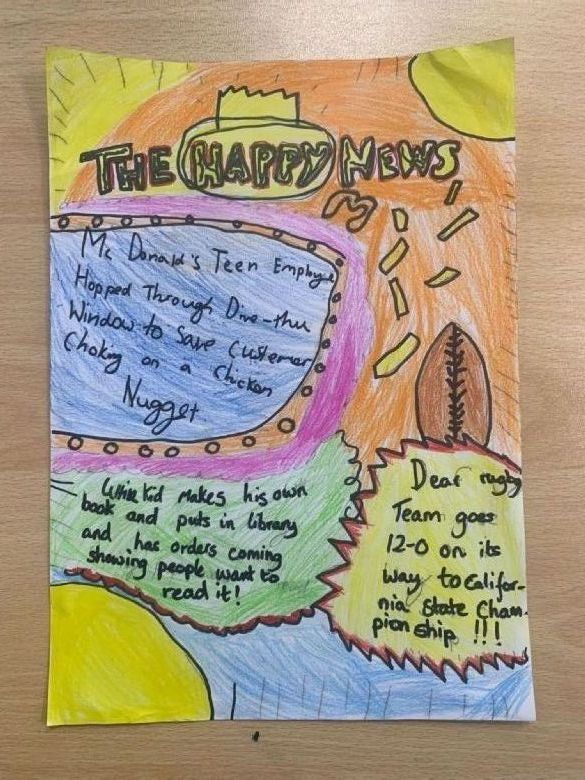 THE HAPPY NEWS
Mc Donald's Teen Employe
Hopped Through Dive-thu
Window to Save Customer
Choking on a Chicken
Nugget
Little Kid makes his own
book and puts in library
and has orders coming
showing people want to
read it!
Deaf rugby
Team goes
12-0 on its
way to Califor-
nia State Cham-
pionship !!!